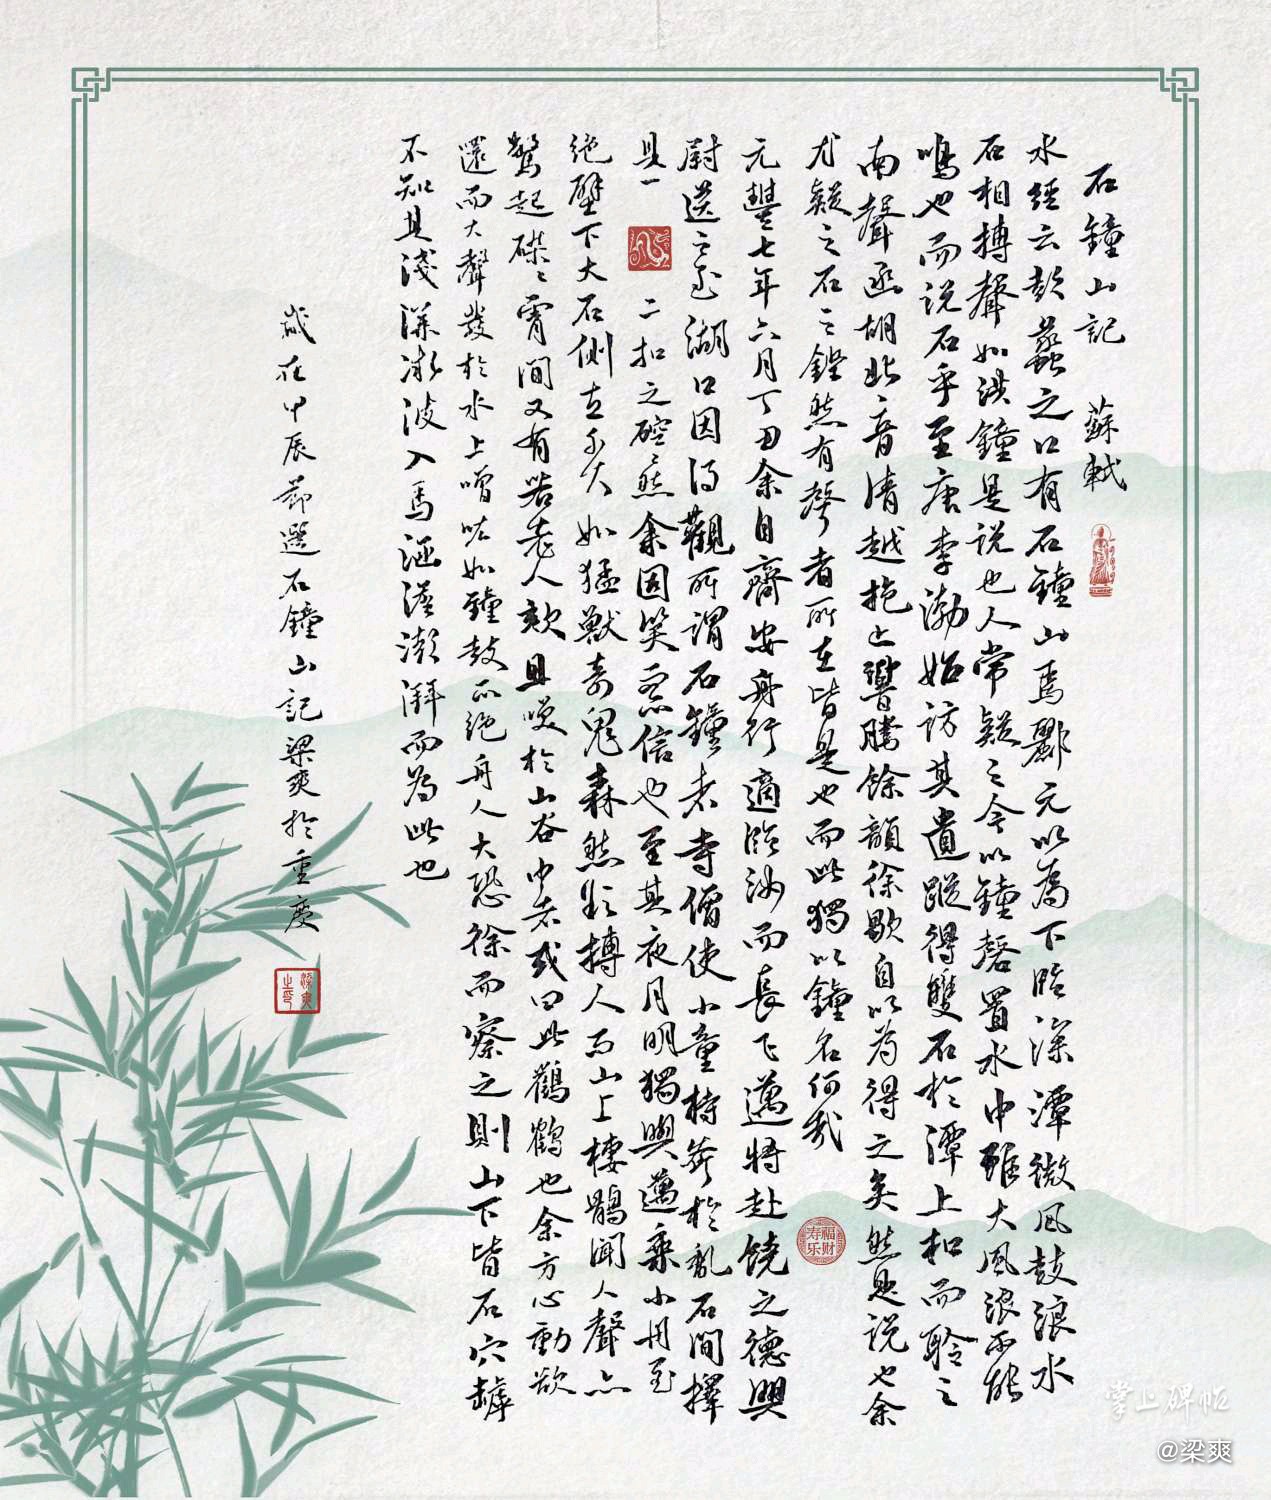 石鐘山記 蘇軾
水經云彭蠡之口有石鐘山焉酈元以為下臨深潭微風鼓浪水
石相搏聲如洪鐘是說也人常疑之今以鐘磬置水中雖大風浪不能
鳴也而況石乎至唐李渤始訪其遺蹤得雙石於潭上扣而聆之
南聲函胡北音清越枹止響騰餘韻徐歇自以為得之矣然是說也余
尤疑之石之鏗然有聲者所在皆是也而此獨以鐘名何哉
福財壽樂
元豐七年六月丁丑余自齊安舟行適臨汝而長子邁將赴饒之德興
尉送之至湖口因得觀所謂石鐘者寺僧使小童持斧於亂石間擇
其一二扣之硿硿然余固笑而不信也至其夜月明獨與邁乘小舟至
絕壁下大石側立千尺如猛獸奇鬼森然欲搏人而山上棲鶻聞人聲亦
驚起磔磔霄間又有若老人欬且笑於山谷中者或曰此鸛鶴也余方心動欲
還而大聲發於水上噌吰如鐘鼓不絕舟人大恐徐而察之則山下皆石穴罅
不知其淺深微波入焉涵澹澎湃而為此也
歲在甲辰節選石鐘山記梁爽於重慶
梁爽之印
掌上碑帖
@梁爽